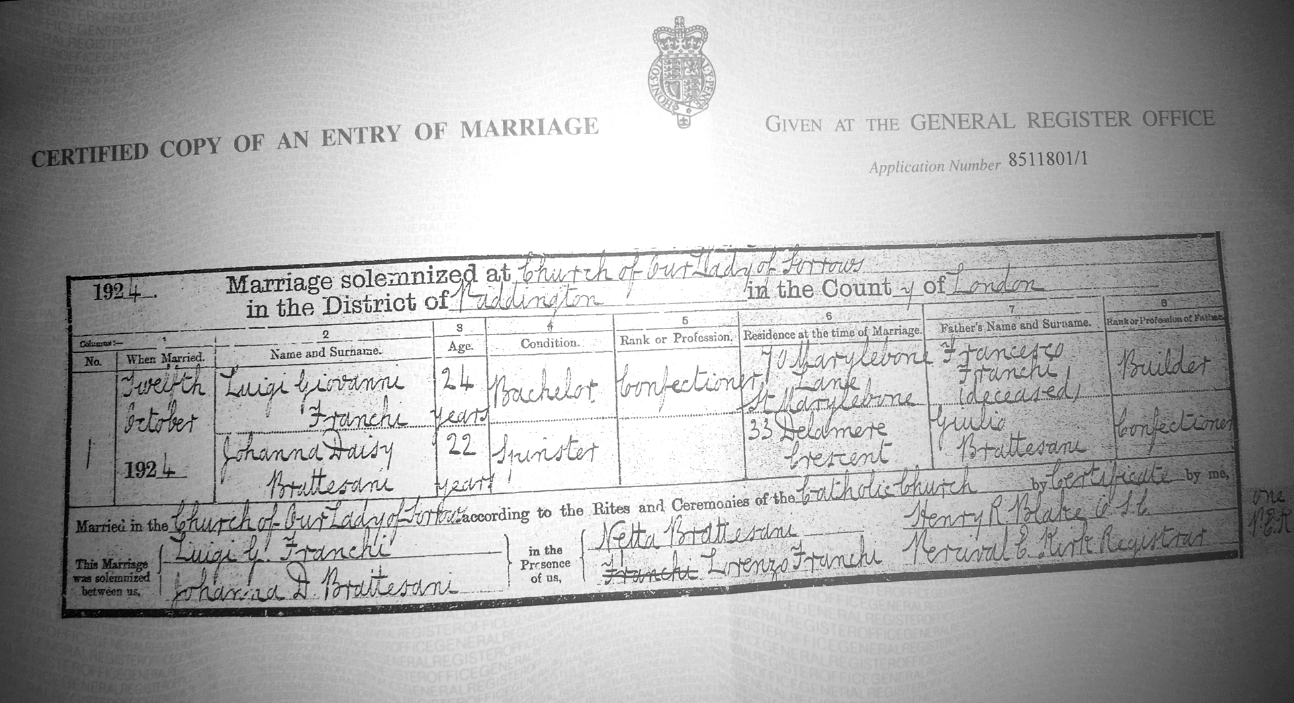 CERTIFIED COPY OF AN ENTRY OF MARRIAGE
GIVEN AT THE GENERAL REGISTER OFFICE
Application Number 8511801/1
1924. Marriage solemnized at Church of Our Lady of Sorrows
in the District of Paddington in the County of London
Columns:— 1 2 3 4 5 6 7 8
No. When Married. Name and Surname. Age. Condition. Rank or Profession. Residence at the time of Marriage. Father's Name and Surname. Rank or Profession of Father.
1
Twelfth
October
1924
Luigi Giovanni
Franchi
24
years
Bachelor
Confectioner
70 Marylebone
Lane
St Marylebone
Francesco
Franchi
(deceased)
Builder
Johanna Daisy
Brattesani
22
years
Spinster
33 Delamere
Crescent
Giulio
Brattesani
Confectioner
Married in the Church of Our Lady of Sorrows according to the Rites and Ceremonies of the Catholic Church by Certificate by me,
This Marriage
was solemnized
between us,
Luigi G. Franchi
Johanna D. Brattesani
in the
Presence
of us,
Netta Brattesani
Franchi Lorenzo Franchi
Henry R. Blake
Kirk Registrar
one